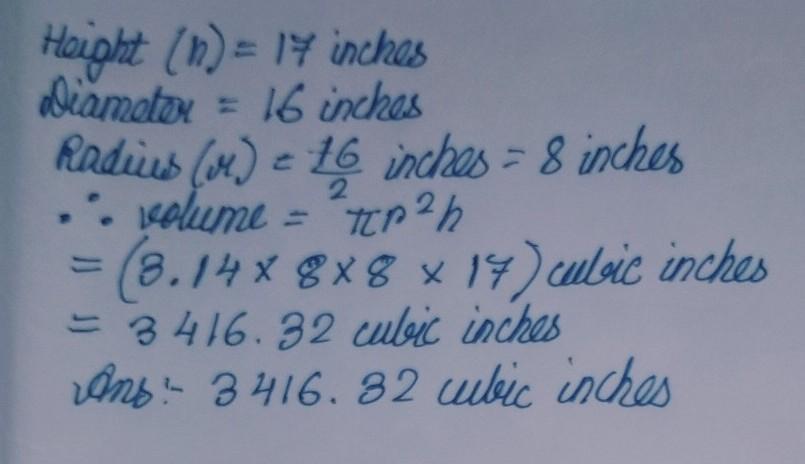 Height (h) = 17 inches
Diameter = 16 inches
Radius (r) = 16/2 inches = 8 inches
∴ volume = πr²h
= (3.14 × 8 × 8 × 17) cubic inches
= 3416.32 cubic inches
Ans:- 3416.32 cubic inches